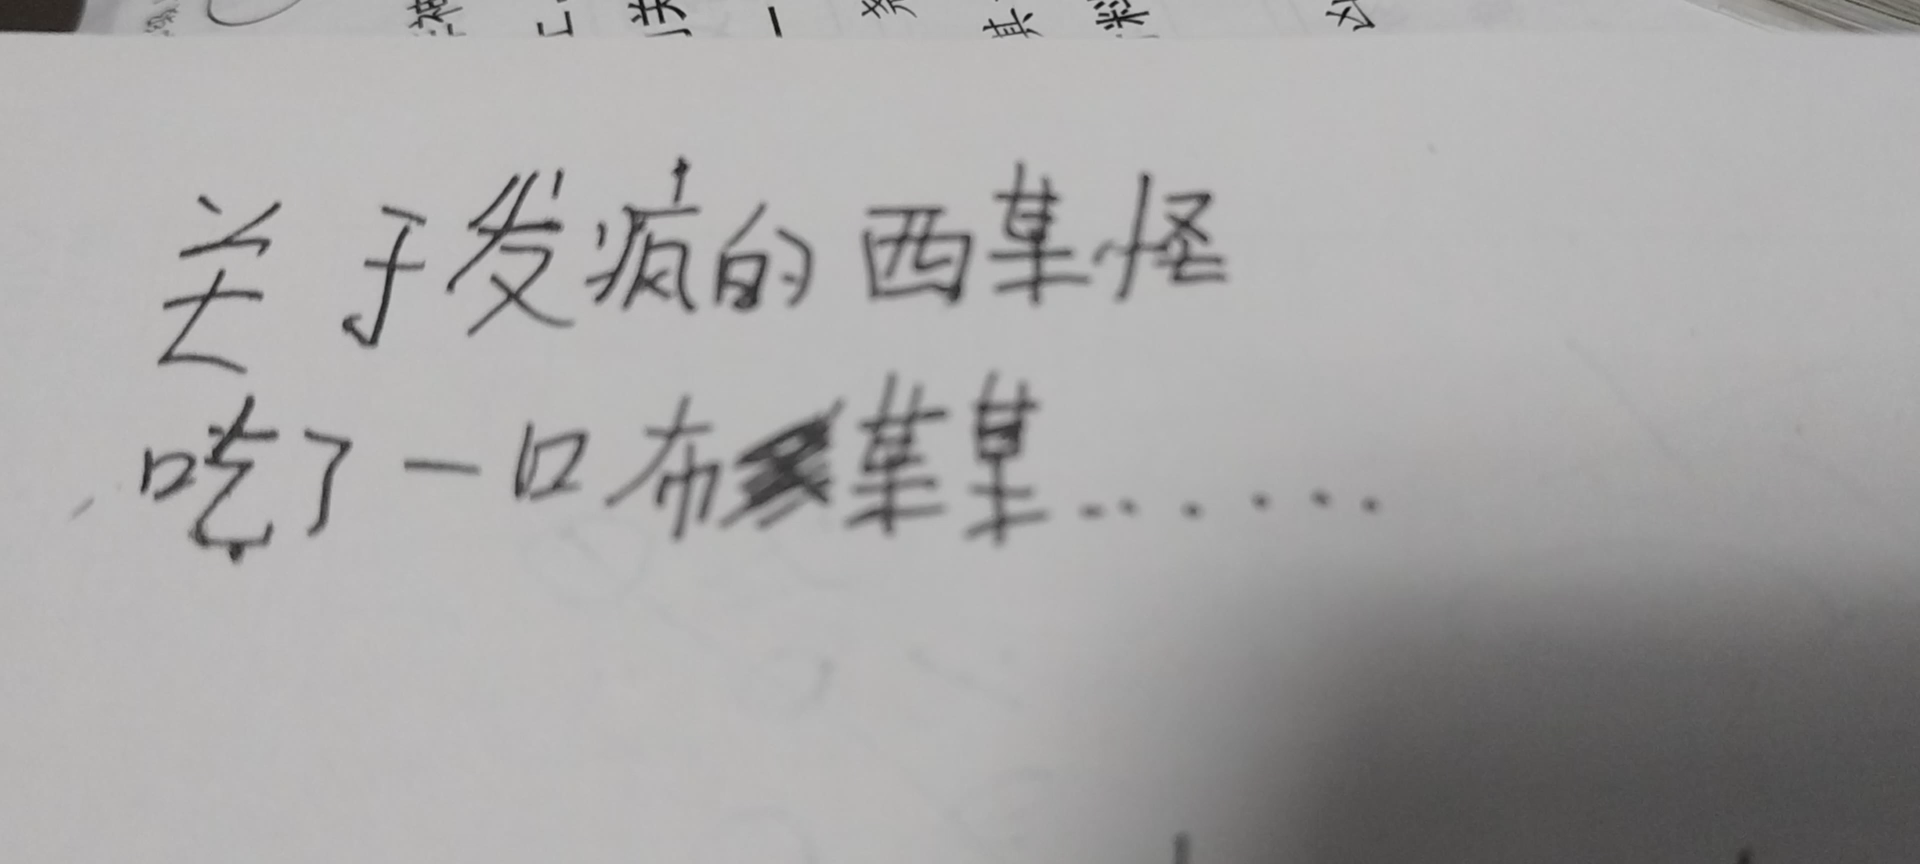 关于发疯的西草怪
吃了一口布草草.......